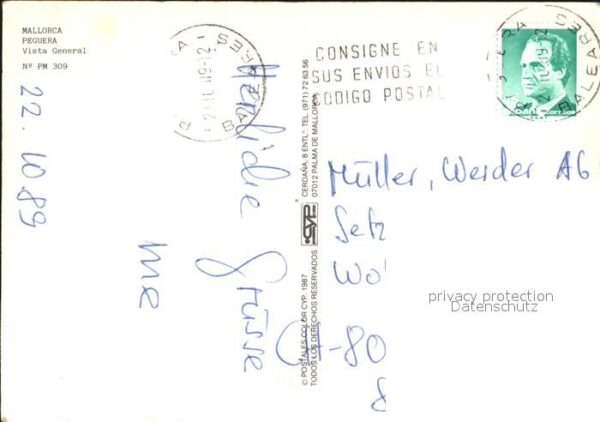 MALLORCA
PEGUERA
Vista General
Nº PM 309
22. 10. 89
Herzliche Grüsse
CONSIGNE EN
SUS ENVIOS EL
CODIGO POSTAL
BALEARES
BALEARES
CERDAÑA, 8 ENTLº. TEL. (971) 72 63 56
07012 PALMA DE MALLORCA
CYP
© POSTALES COLOR CYP. 1987
TODOS LOS DERECHOS RESERVADOS
Müller, Werder AG
Setz
Wo
CH-80
8
privacy protection
Datenschutz